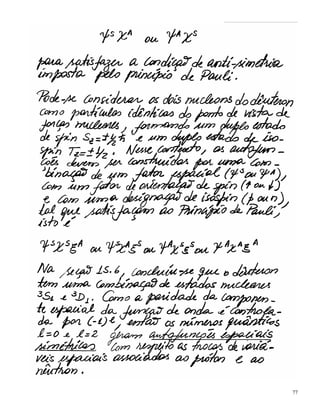 ψˢ χᴬ ou ψᴬ χˢ
para satisfazer a condição de anti-simetria
imposta pelo princípio de Pauli.
Pode-se considerar os dois nucleons do dêuteron
como partículas idênticas do ponto de vista de
forças nucleares, formando um duplo estado
de spin S_z=±½ħ e um duplo estado de iso-
spin T_z=±½. Nesse contexto, as autofun-
ções devem ser construídas por uma com-
binação de um fator espacial (ψˢ ou ψᴬ),
com um fator de orientação de spin (↑ ou ↓)
e com uma designação de isospin (p ou n),
tal que satisfaçam ao Princípio de Pauli,
isto é
ψˢχˢξᴬ ou ψˢχᴬξˢ ou ψᴬχˢξˢ ou ψᴬχᴬξᴬ
Na seção 15.6, concluiu-se que o dêuteron
tem uma combinação de estados nucleares
³S₁ e ³D₁. Como a paridade da componen-
te espacial da função de onda é controla-
da por (-1)ˡ, então os números quânticos
l=0 e l=2 geram autofunções espaciais
simétricas com respeito às trocas de variá-
veis espaciais associadas ao próton e ao
nêutron.